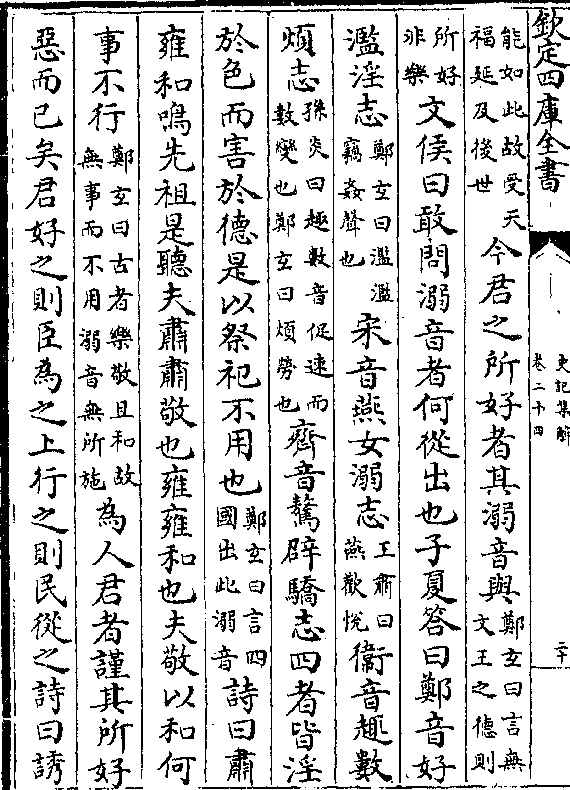 欽定四庫全書
史記集解
卷二十四
二十
能如此故受天
福延及後世
今君之所好者其溺音與
鄭玄曰言無
文王之德則
所好
非樂
文侯曰敢問溺音者何從出也子夏答曰鄭音好
濫淫志
鄭玄曰濫濫
竊姦聲也
宋音燕女溺志
王肅曰
燕歡悦
衞音趣數
煩志
孫炎曰趣數音促速而
數變也鄭玄曰煩勞也
齊音驁辟驕志四者皆淫
於色而害於德是以祭祀不用也
鄭玄曰言四
國出此溺音
詩曰肅
雍和鳴先祖是聽夫肅肅敬也雍雍和也夫敬以和何
事不行
鄭玄曰古者樂敬且和故
無事而不用溺音無所施
為人君者謹其所好
惡而已矣君好之則臣為之上行之則民從之詩曰誘